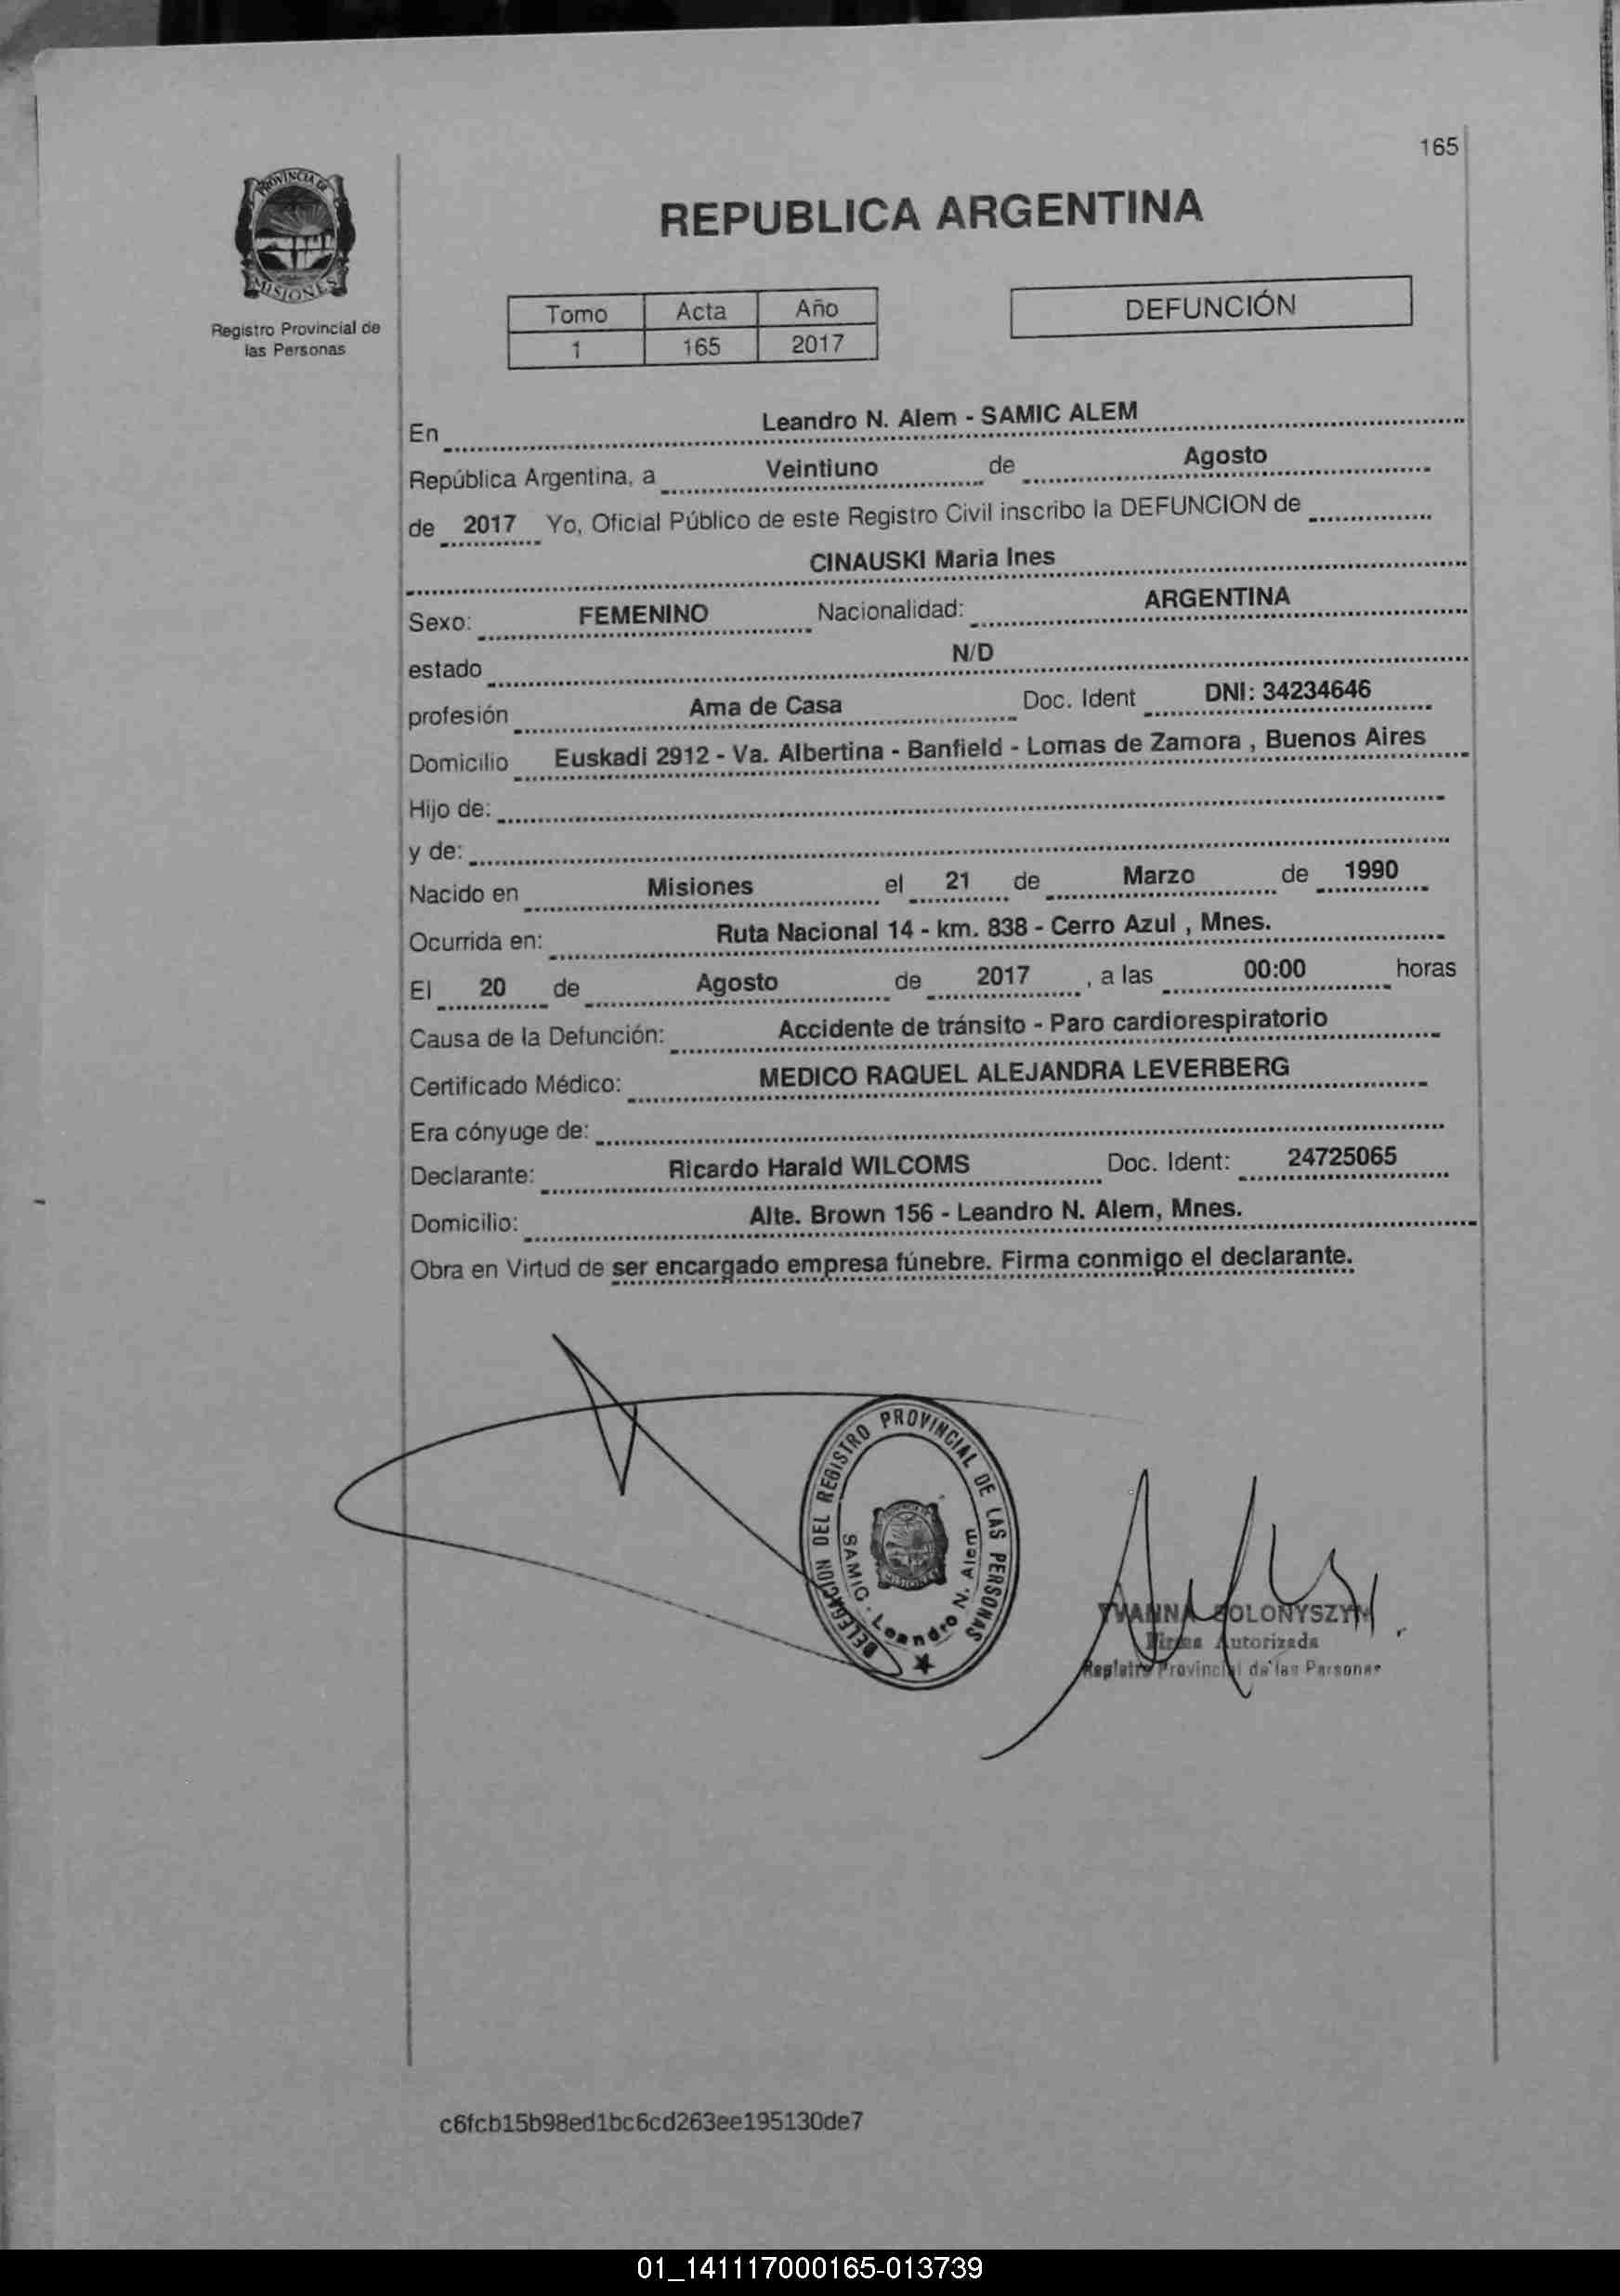 165
PROVINCIA DE
MISIONES
Registro Provincial de
las Personas
REPUBLICA ARGENTINA
Tomo Acta Año
1 165 2017
DEFUNCIÓN
En Leandro N. Alem - SAMIC ALEM
República Argentina, a Veintiuno de Agosto
de 2017 Yo, Oficial Público de este Registro Civil inscribo la DEFUNCION de
CINAUSKI Maria Ines
Sexo: FEMENINO Nacionalidad: ARGENTINA
estado N/D
profesión Ama de Casa Doc. Ident DNI: 34234646
Domicilio Euskadi 2912 - Va. Albertina - Banfield - Lomas de Zamora , Buenos Aires
Hijo de:
y de:
Nacido en Misiones el 21 de Marzo de 1990
Ocurrida en: Ruta Nacional 14 - km. 838 - Cerro Azul , Mnes.
El 20 de Agosto de 2017 , a las 00:00 horas
Causa de la Defunción: Accidente de tránsito - Paro cardiorespiratorio
Certificado Médico: MEDICO RAQUEL ALEJANDRA LEVERBERG
Era cónyuge de:
Declarante: Ricardo Harald WILCOMS Doc. Ident: 24725065
Domicilio: Alte. Brown 156 - Leandro N. Alem, Mnes.
Obra en Virtud de ser encargado empresa fúnebre. Firma conmigo el declarante.
DELEGACION DEL REGISTRO PROVINCIAL DE LAS PERSONAS
SAMIC - Leandro N. Alem
Firma Autorizada
Registro Provincial de las Personas
c6fcb15b98ed1bc6cd263ee195130de7
01_141117000165-013739